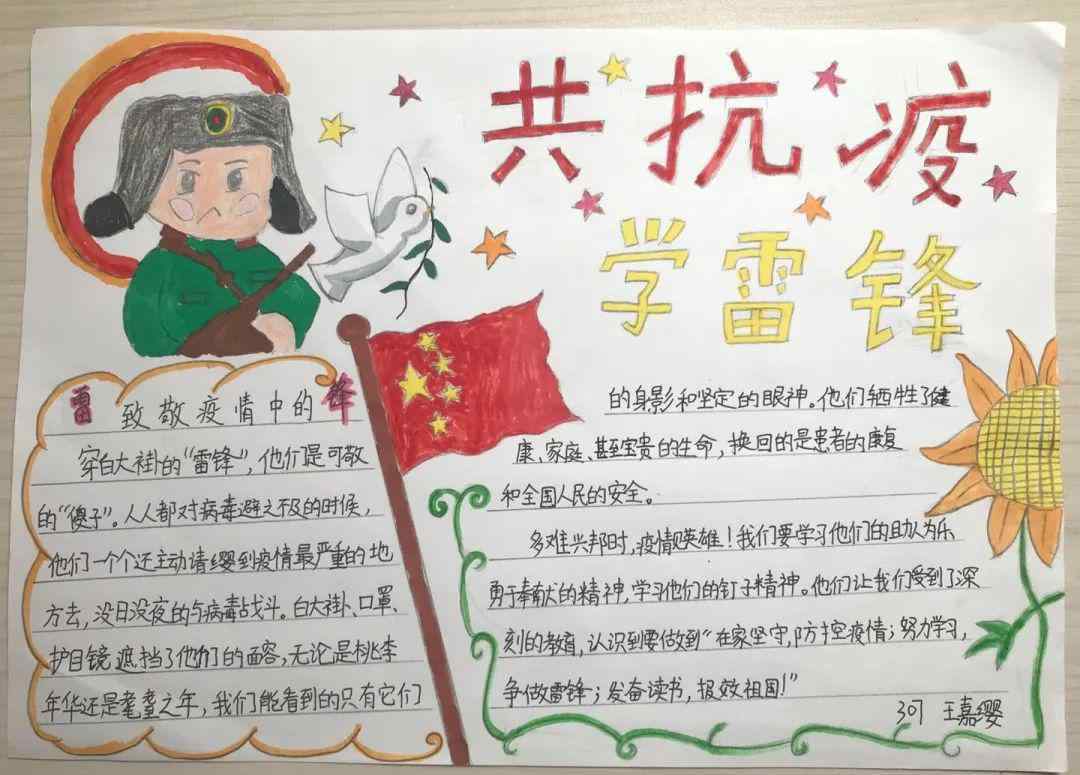 共抗疫
学雷锋
致敬疫情中的雷锋
穿白大褂的“雷锋”,他们是可敬
的“傻子”。人人都对病毒避之不及的时候,
他们一个个还主动请缨到疫情最严重的地
方去,没日没夜的与病毒战斗。白大褂、口罩、
护目镜遮挡了他们的面容,无论是桃李
年华还是耄耋之年,我们能看到的只有它们
的身影和坚定的眼神。他们牺牲了健
康、家庭、甚至宝贵的生命,换回的是患者的康复
和全国人民的安全。
多难兴邦时,疫情见英雄!我们要学习他们的助人为乐
勇于奉献的精神,学习他们的钉子精神。他们让我们受到了深
刻的教育,认识到要做到“在家坚守,防控疫情;努力学习,
争做雷锋;发奋读书,报效祖国!”
307 王嘉缨